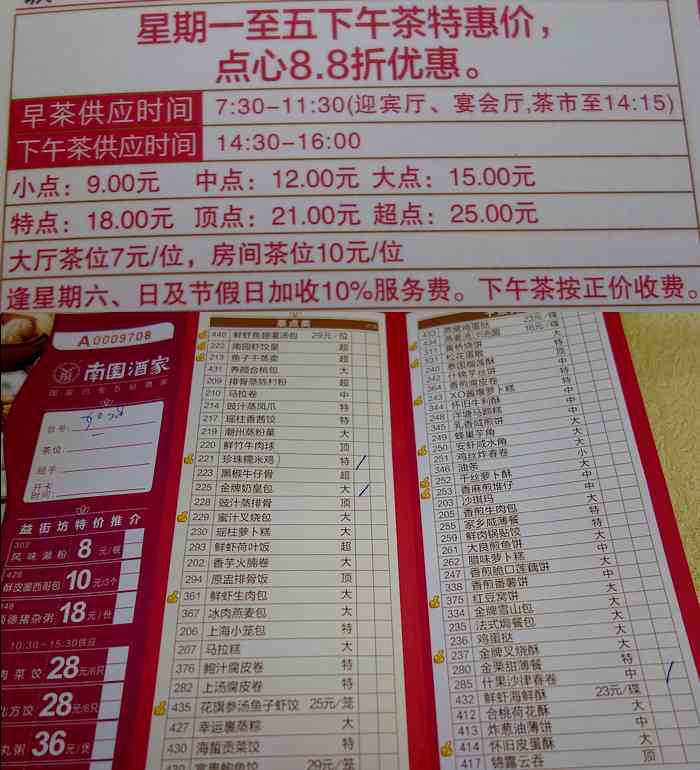 星期一至五下午茶特惠价，
点心8.8折优惠。
早茶供应时间 7:30-11:30(迎宾厅、宴会厅,茶市至14:15)
下午茶供应时间 14:30-16:00
小点：9.00元 中点：12.00元 大点：15.00元
特点：18.00元 顶点：21.00元 超点：25.00元
大厅茶位7元/位，房间茶位10元/位
逢星期六、日及节假日加收10%服务费。下午茶按正价收费。
A0009708
南国酒家
国家四星五钻酒家
台号：
茶位：
经手：
开卡
时间：
益街坊特价推介
302
风味濑粉 8 元/碗
428
酥皮墨西哥包 10 元/3个
348
顺德猪杂粥 18 元/份
10:30-15:30供应
肉菜饺 28 元/6只
北方饺 28 元/6只
丸粥 36 元/煲
440 鲜虾鱼翅灌汤包 29元/位
222 南园虾饺皇 超
213 鱼子干蒸卖 超
431 养颜合桃包 大
209 排骨蒸陈村粉 超
210 马拉卷 中
214 豉汁蒸凤爪 特
217 瑶柱香茜饺 特
219 潮州蒸粉菓 大
220 鲜竹牛肉球 顶
221 珍珠糯米鸡 特
223 黑椒牛仔骨 超
225 金牌奶皇包 大
228 豉汁蒸排骨 顶
229 蜜汁叉烧包 大
230 瑶柱萝卜糕 大
293 鲜虾荷叶饭 超
202 香芋火腩卷 大
294 原盅排骨饭 顶
361 鲜虾生肉包 大
367 冰肉燕麦包 大
206 上海小笼包 特
207 马拉糕 大
376 鲍汁腐皮卷 特
282 上汤腐皮卷 特
435 花旗参汤鱼子虾饺 25元/笼
427 幸运裹蒸粽 大
430 海蜇贡菜饺 特
29元/笼
433 燕窝鸡蛋挞 23元/碟
434 18元/碟
311 黄桥烧饼 特
531 松花蛋散 顶
240 泰国榴莲酥 中
242 什锦芋丝饼 大
364 香煎腐皮卷 特
243 XO酱爆萝卜糕 中
344 怀旧牛利酥 中
248 泮塘马蹄糕 大
345 乳香咸煎饼 大
249 蜂巢芋角 大
250 安虾咸水角 大
251 鸡丝炸春卷 小
346 油条 大
252 干丝萝卜酥 中
253 香麻煎堆仔 中
203 沙琪玛 大
205 香煎生肉包 特
255 家乡咸薄餐 特
259 鲜肉锅贴饺 大
261 大良煎鱼饼 中
262 腊味萝卜糕 大
247 香煎脆口莲藕饼 中
338 香煎番薯饼 中
375 红豆窝饼 大
334 金牌雪山包 大
235 法式焗餐包 大
236 鸡蛋挞 大
237 金牌叉烧酥 特
280 金粟甜薄餐 中
285 什果沙律春卷
432 鲜虾海鲜酥 23元/碟
412 合桃荷花酥 大
413 炸煎油薄饼 中
414 怀旧皮蛋酥 大
417 锦露云吞 顶